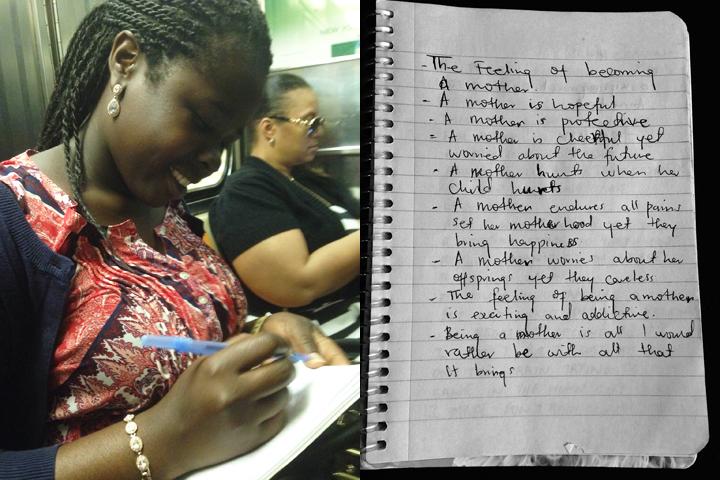 - The Feeling of becoming
a mother.
- A mother is hopeful
- A mother is protective
- A mother is cheerful yet
worried about the future
- A mother hurts when her
child hurts
- A mother endures all pains
set her motherhood yet they
bring happiness
- A mother worries about her
offsprings yet they careless
- The feeling of being a mother
is exciting and addictive.
- Being a mother is all I would
rather be with all that
it brings